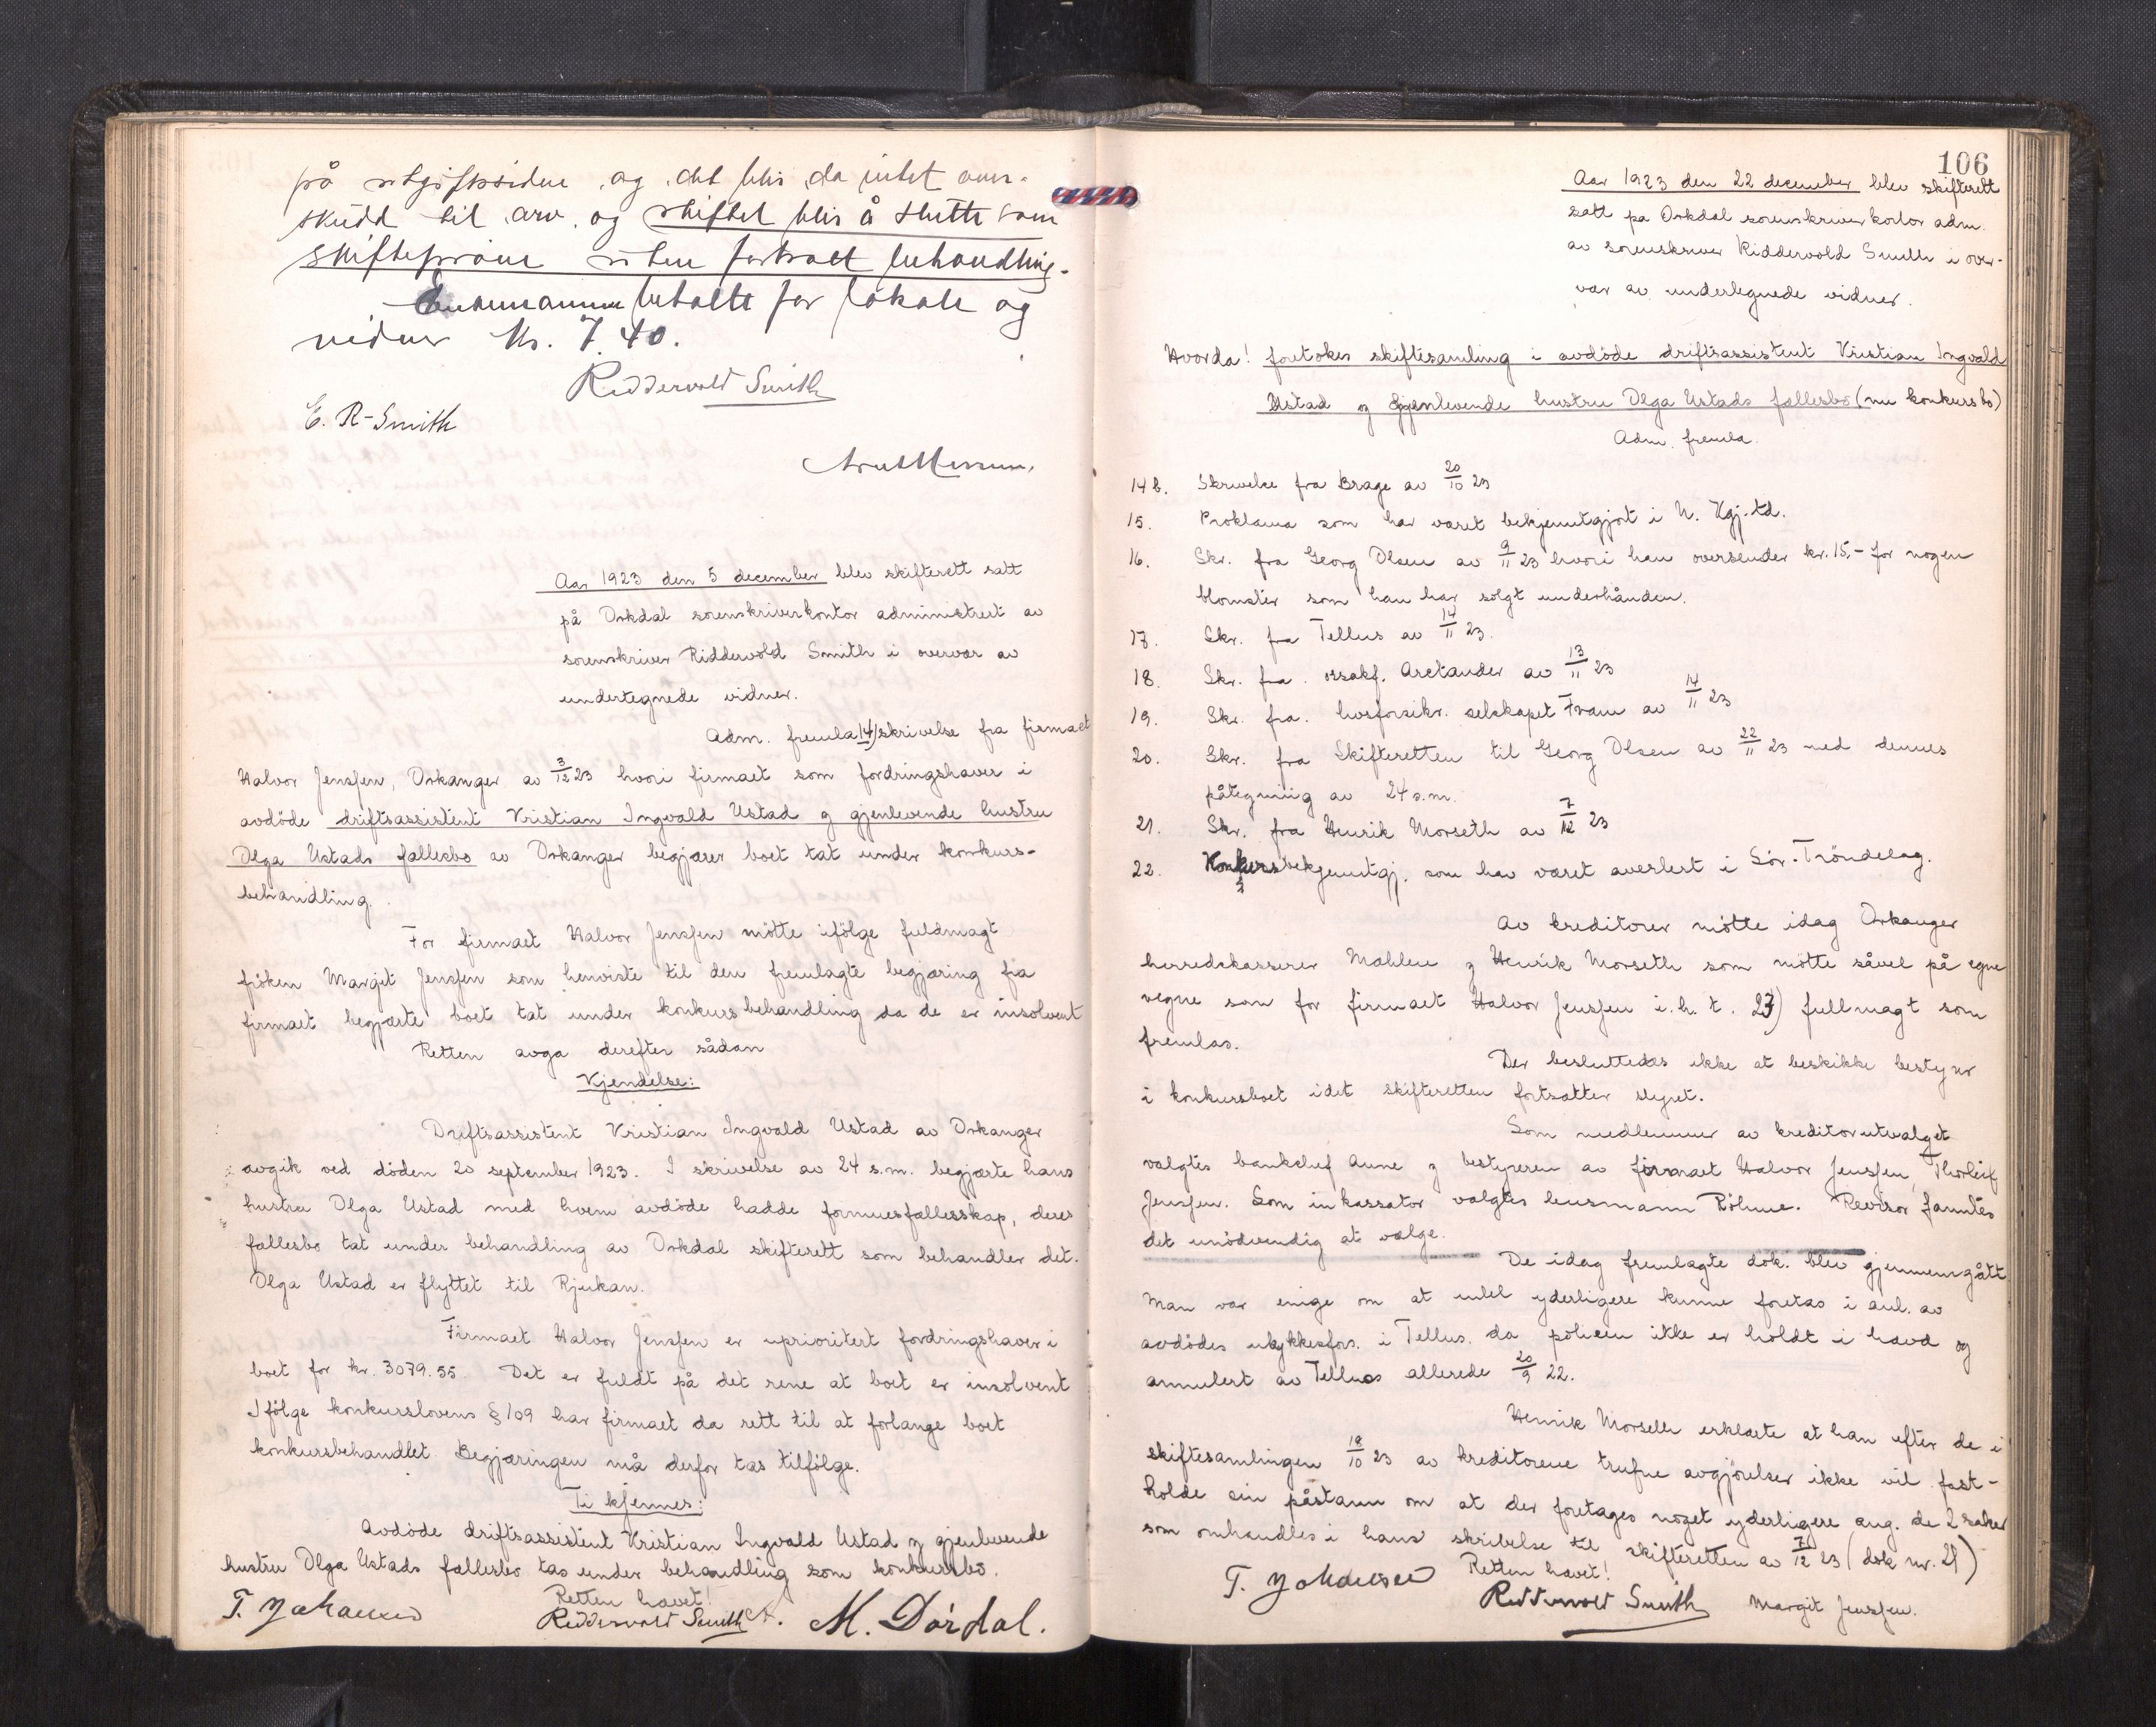 på utgiftssiden og det blir da intet over-
skudd til arv og skiftet blir å slutte som
skifteprøve uten fortsatt behandling.
betalte for lokale og
vidner Kr. 7.40.
Riddervold Smith
E. R-Smith
Aar 1923 den 5 december blev skifterett satt
på Orkdal sorenskriverkontor administrert av
sorenskriver Riddervold Smith i overvær av
undertegnede vidner.
Adm. fremla 14) skrivelse fra firmaet
Halvor Jenssen, Orkanger av 3/12 23 hvori firmaet som fordringshaver i
avdöde driftsassistent Kristian Ingvald Ustad og gjenlevende hustru
Olga Ustads fællesbo av Orkanger begjærer boet tat under konkurs-
behandling.
For firmaet Halvor Jenssen mötte ifölge fuldmagt
fröken Margit Jenssen som henviste til den fremlagte begjæring fra
firmaet begjærte boet tat under konkursbehandling da de er insolvent
Retten avga derefter sådan
Kjendelse:
Driftsassistent Kristian Ingvald Ustad av Orkanger
avgik ved döden 20 september 1923. I skrivelse av 24 s.m. begjærte hans
hustru Olga Ustad med hvem avdöde hadde formuesfællesskap, deres
fællesbo tat under behandling av Orkdal skifterett som behandler det.
Olga Ustad er flyttet til Rjukan.
Firmaet Halvor Jenssen er uprioritert fordringshaver i
boet for kr. 3079.55. Det er fuldt på det rene at boet er insolvent
Ifölge konkurslovens § 109 har firmaet da rett til at forlange boet
konkursbehandlet. Begjæringen må derfor tas tilfölge.
Ti kjennes:
Avdöde driftsassistent Kristian Ingvald Ustad og gjenlevende
hustru Olga Ustads fællesbo tas under behandling som konkursbo.
Retten hævet!
T. Johansen Riddervold Smith M. Dørdal.
106
Aar 1923 den 22 december blev skifterett
satt på Orkdal sorenskriverkontor adm.
av sorenskriver Riddervold Smith i over-
vær av undertegnede vidner.
Hvorda! foretokes skiftesamling i avdöde driftsassistent Kristian Ingvald
Ustad og gjenlevende hustru Olga Ustads fællesbo (nu konkursbo)
Adm. fremla.
14 b. Skrivelse fra Brage av 20/10 23
15. Proklama som har været bekjentgjort i N. Kgj.td.
16. Skr. fra Georg Olsen av 9/11 23 hvori han oversender kr. 15,- for nogen
blomster som han har solgt underhånden.
17. Skr. fra Tellus av 14/11 23.
18. Skr. fra orsakf. Arctander av 13/11 23
19. Skr. fra livsforsikr. selskapet Fram av 14/11 23
20. Skr. fra Skifteretten til Georg Olsen av 22/11 23 med dennes
påtegning av 24 s.m.
21. Skr. fra Henrik Morseth av 7/12 23
22. Konkursbekjentgj. som har været avertert i Sör-Tröndelag.
Av kreditorer mötte idag Orkanger
herredskasserer Mæhlen og Henrik Morseth som mötte såvel på egne
vegne som for firmaet Halvor Jenssen i.h.t. 23) fullmagt som
fremlas.
Der besluttedes ikke at beskikke bestyrer
i konkursboet idet skifteretten fortsætter styret.
Som medlemmer av kreditorutvalget
valgtes bankchef Aune og bestyreren av firmaet Halvor Jenssen, Thorleif
Jenssen. Som inkassator valgtes lensmann Röhme. Revisor fanntes
det unödvendig at vælge.
De idag fremlagte dok. blev gjennemgått
Man var enige om at intet yderligere kunne foretas i anl. av
avdödes ulykkesfors. i Tellus, da policen ikke er holdt i hævd og
annulert av Tellus allerede 20/9 22.
Henrik Morseth erklærte at han efter de i
skiftesamlingen 18/10 23 av kreditorene trufne avgjörelser ikke vil fast-
holde sin påstann om at der foretages noget yderligere ang. de 2 saker
som omhandles i hans skrivelse til skifteretten av 7/12 23 (dok nr. 21)
Retten hævet!
T. Johansen Riddervold Smith Margit Jenssen.